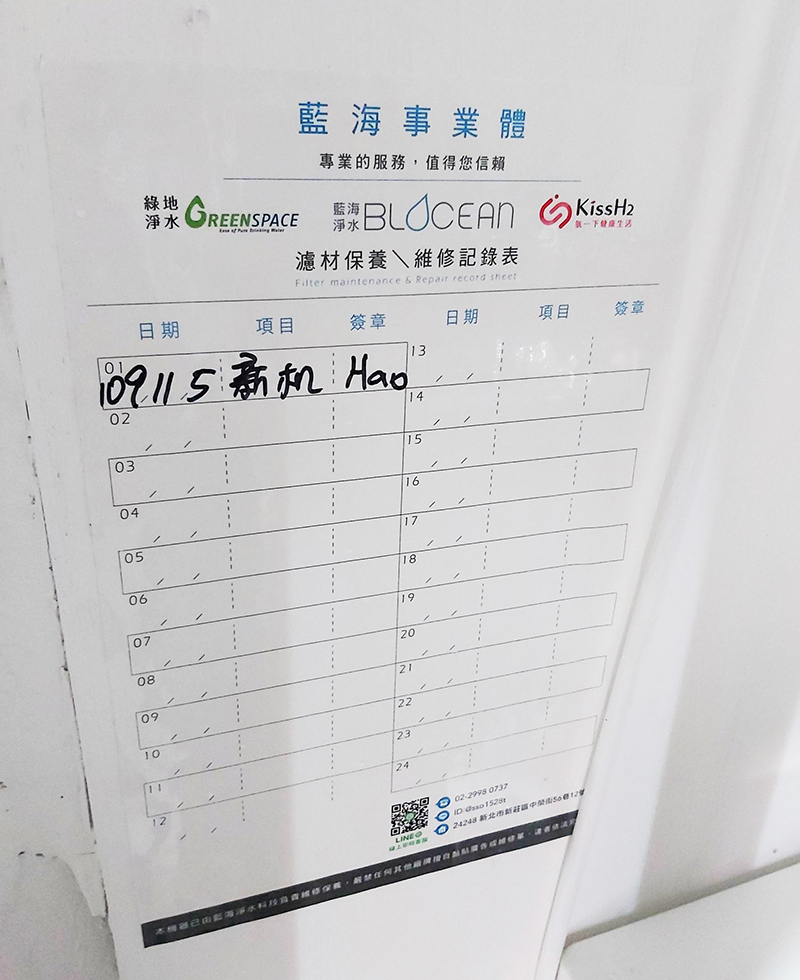 藍海事業體
專業的服務，值得您信賴
綠地淨水 GREENSPACE Ease of Pure Drinking Water
藍海淨水 BLOCEAN
KissH2 氫一下健康生活
濾材保養＼維修記錄表
Filter maintenance & Repair record sheet
日期 項目 簽章 日期 項目 簽章
01 109/11/5 新机 Hao
02 / /
03 / /
04 / /
05 / /
06 / /
07 / /
08 / /
09 / /
10 / /
11 / /
12 / /
13 / /
14 / /
15 / /
16 / /
17 / /
18 / /
19 / /
20 / /
21 / /
22 / /
23 / /
24 / /
LINE@
線上即時客服
02-2998 0737
ID:@sso1528t
24248 新北市新莊區中榮街56巷12號
本機器已由藍海淨水科技負責維修保養，嚴禁任何其他廠牌擅自黏貼廣告或維修單，違者依法